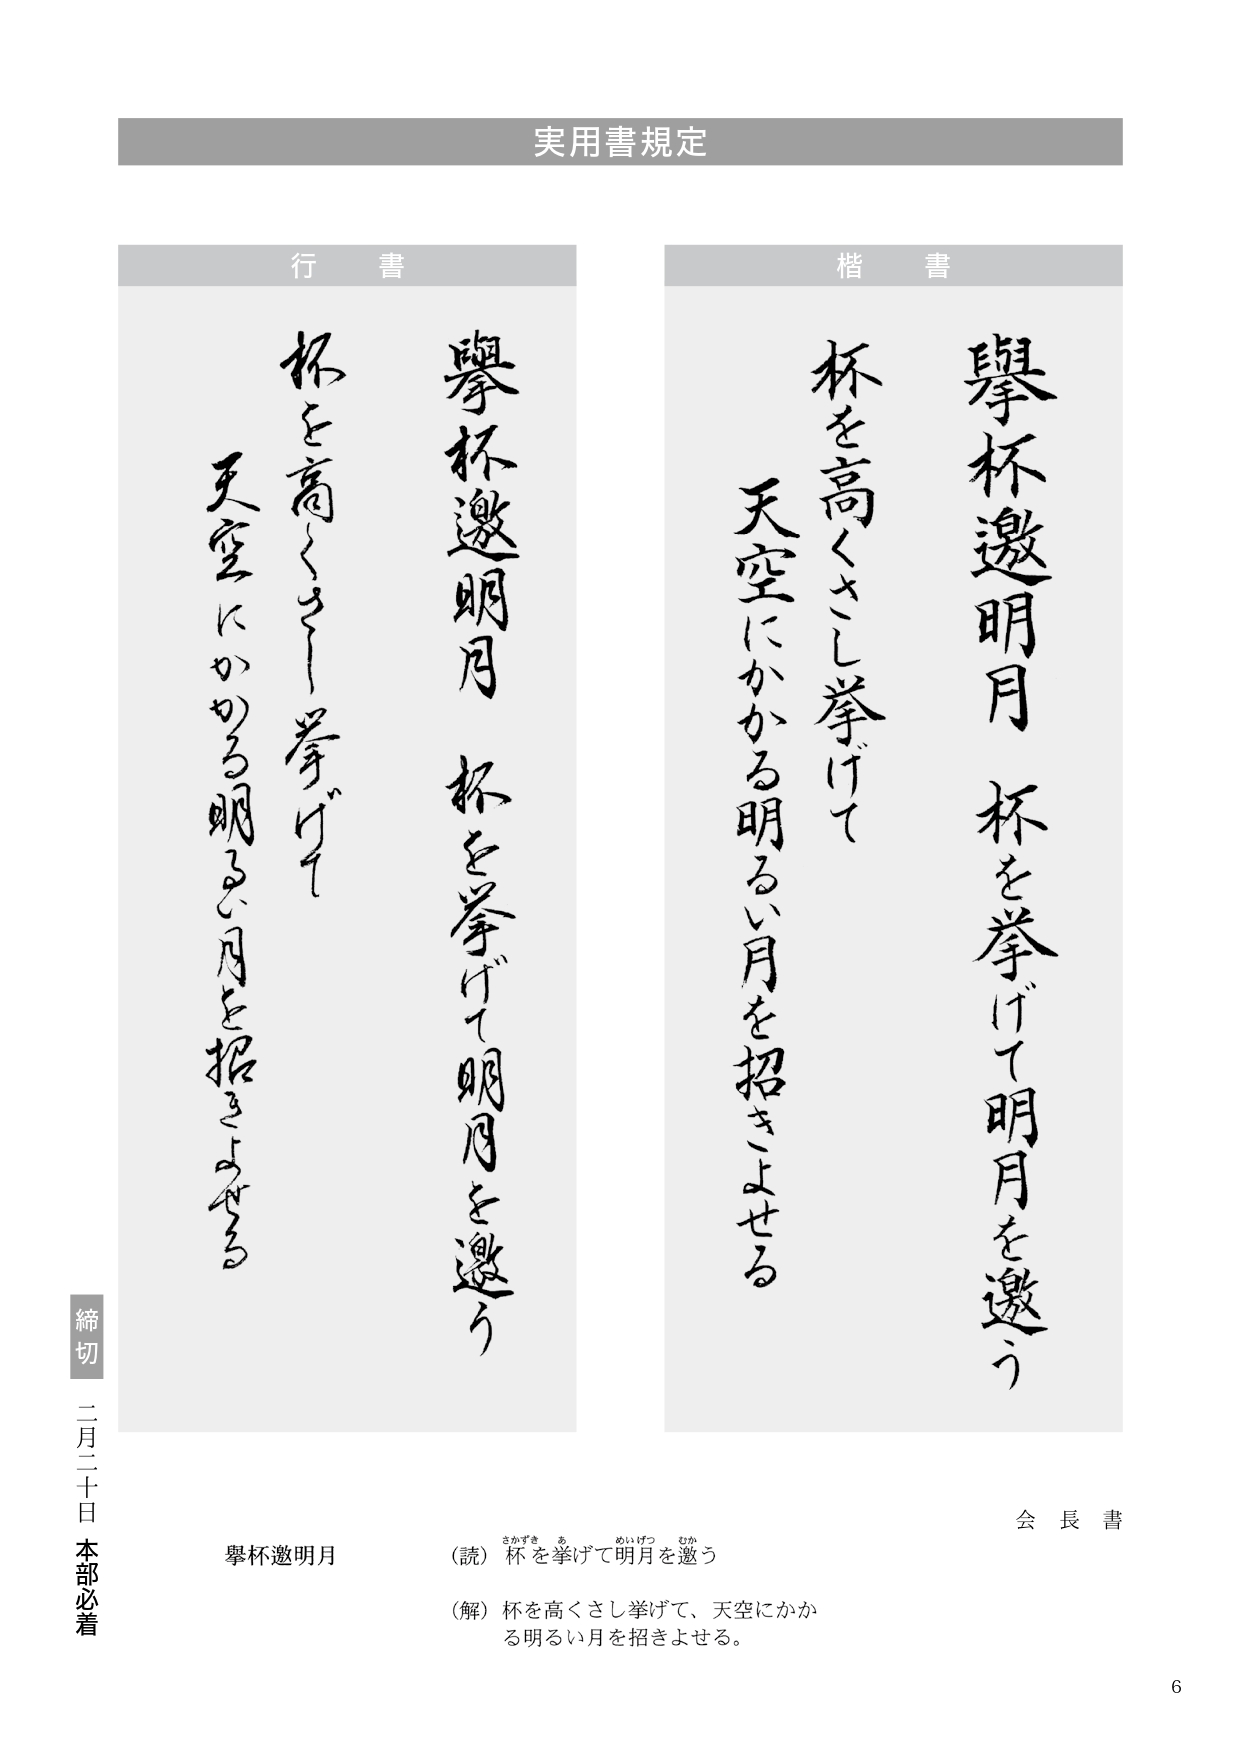 実用書規定
楷書
擧杯邀明月 杯を挙げて明月を邀う
杯を高くさし挙げて
天空にかかる明るい月を招きよせる
行書
擧杯邀明月 杯を挙げて明月を邀う
杯を高くさし挙げて
天空にかかる明るい月を招きよせる
締切 二月二十日 本部必着
会長書
擧杯邀明月
さかずき あ めいげつ むか
(読) 杯を挙げて明月を邀う
(解) 杯を高くさし挙げて、天空にかか
る明るい月を招きよせる。
6